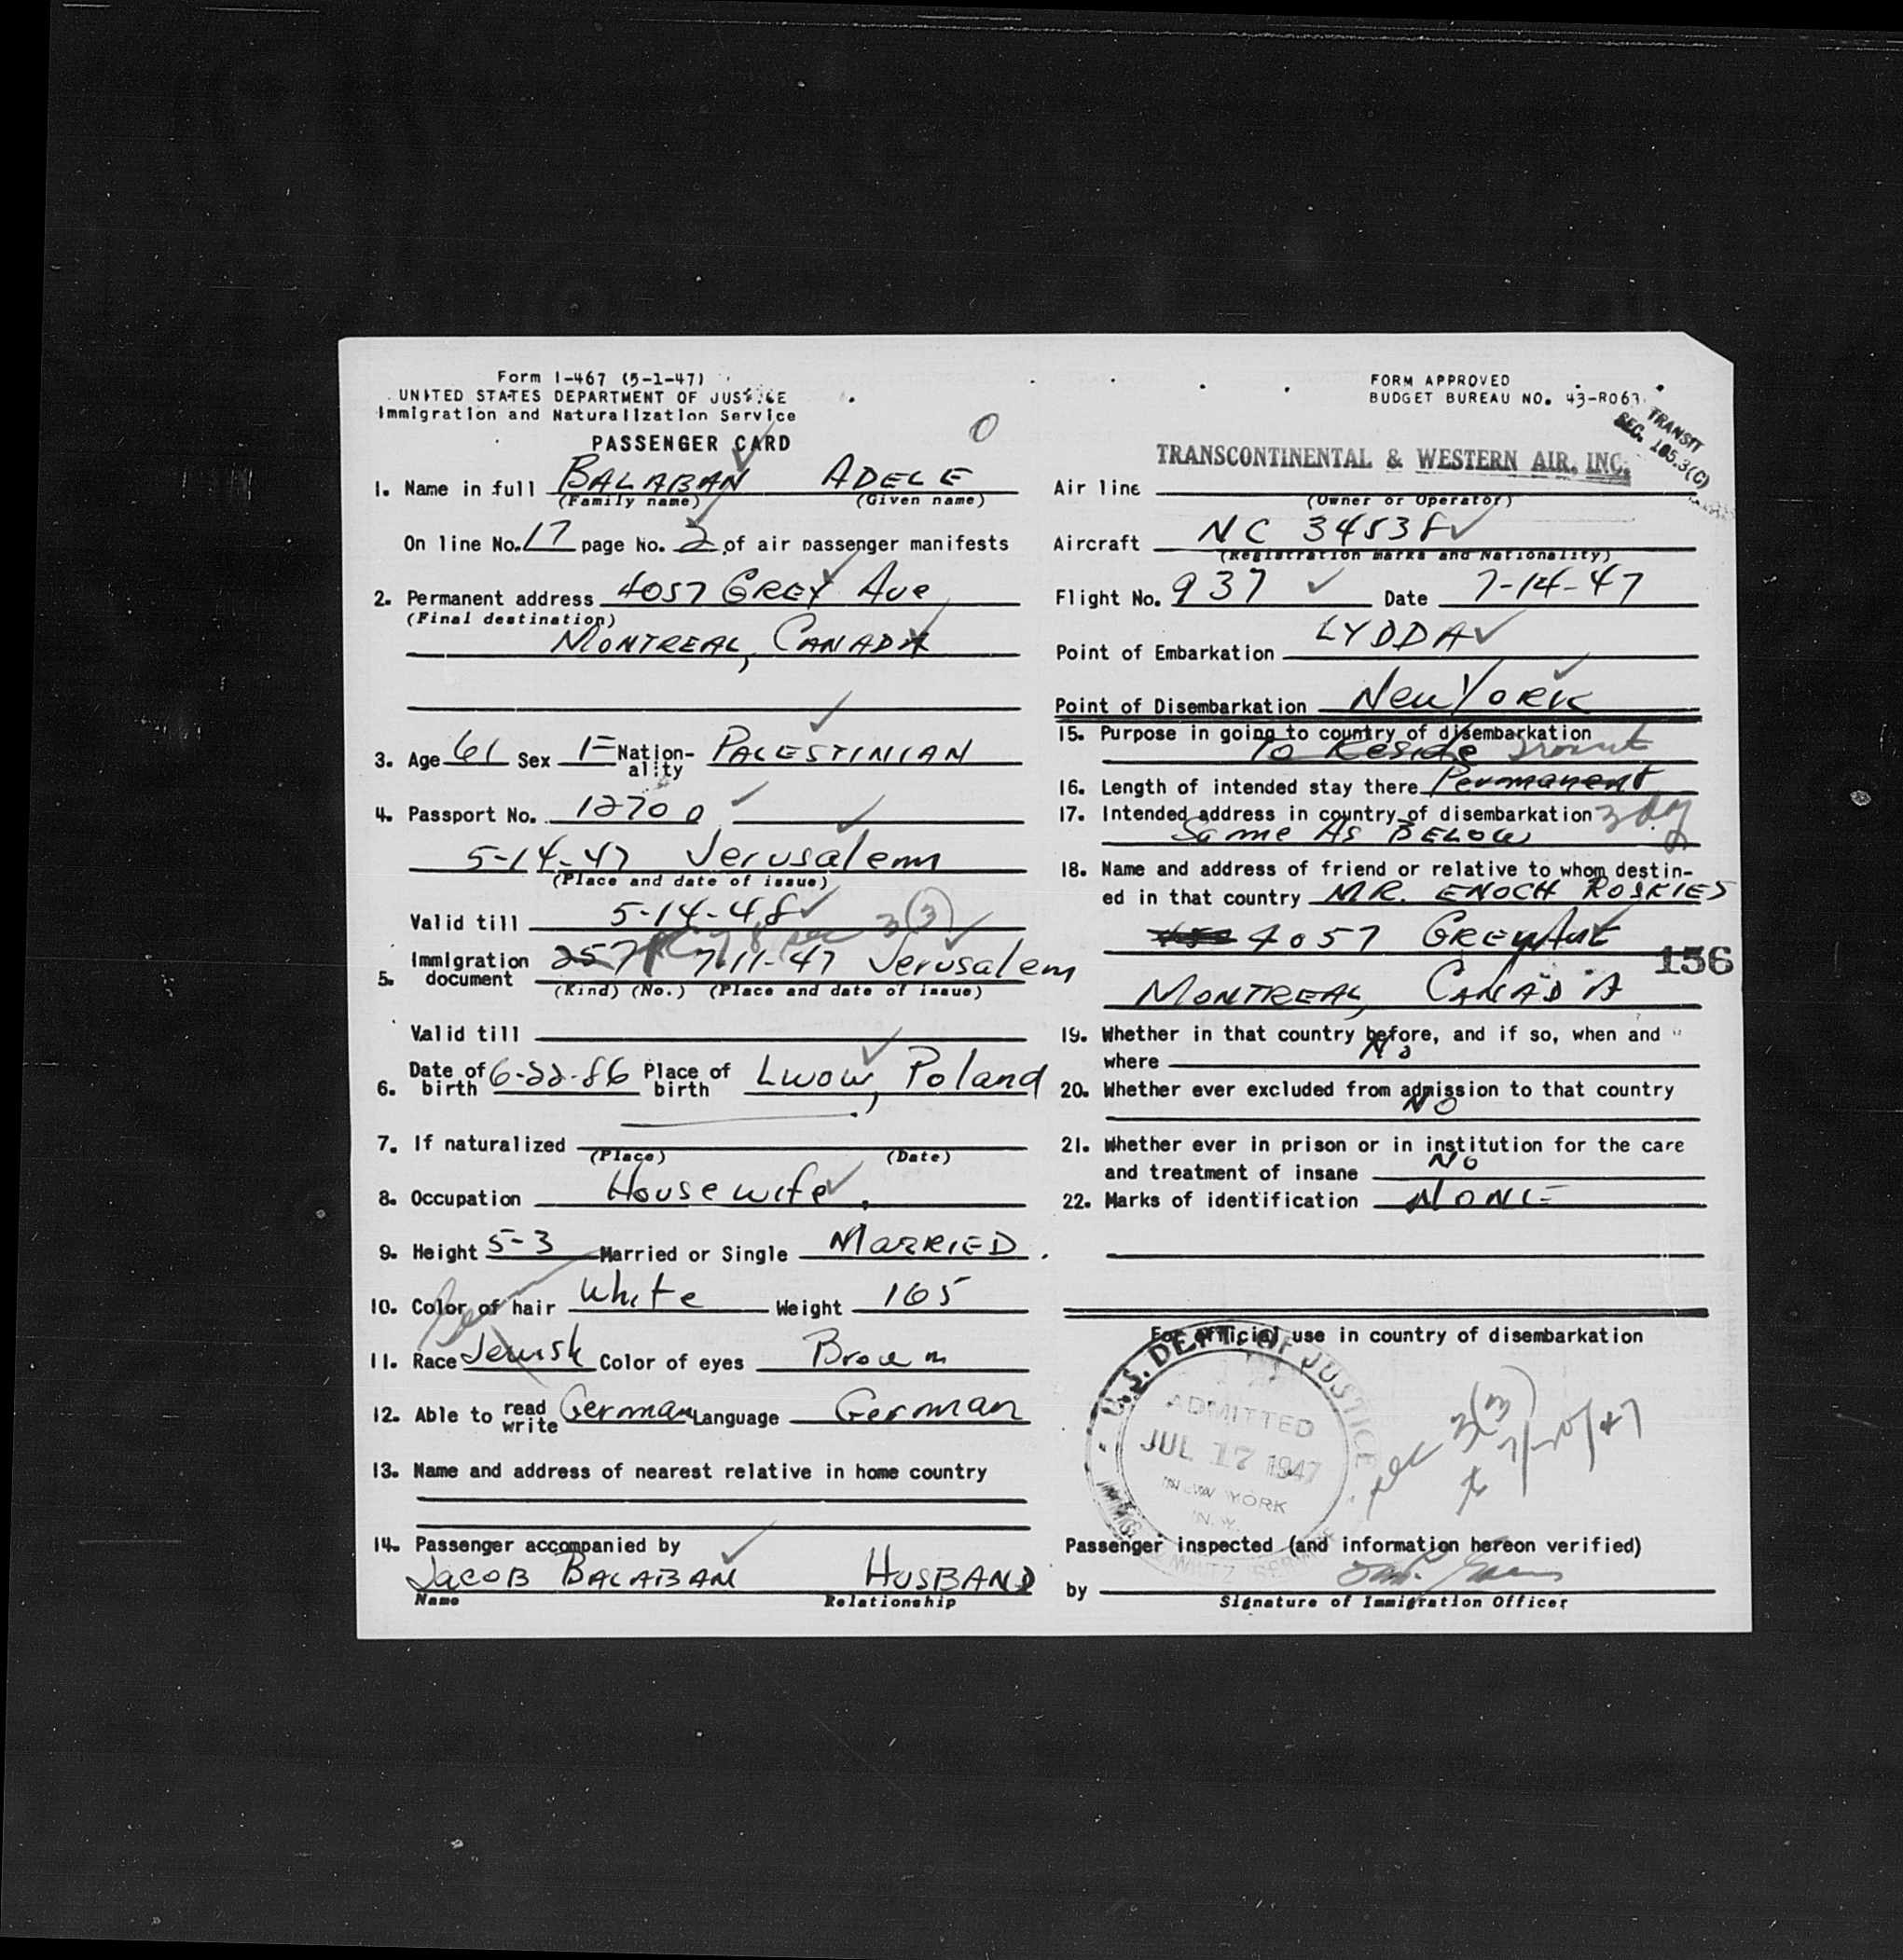 Form I-467 (5-1-47)
UNITED STATES DEPARTMENT OF JUSTICE
Immigration and Naturalization Service
PASSENGER CARD
0
1. Name in full BALABAN ADELE
(Family name) (Given name)
On line No. 17 page No. 2 of air passenger manifests
2. Permanent address 4057 GREY Ave
(Final destination)
MONTREAL, CANADA
3. Age 61 Sex F Nation-ality PALESTINIAN
4. Passport No. 12700
5-14-47 Jerusalem
(Place and date of issue)
Valid till 5-14-48
sec 3(3)
5. Immigration document 257 7-11-47 Jerusalem
(Kind) (No.) (Place and date of issue)
Valid till
6. Date of birth 6-22-86 Place of birth Lwow, Poland
7. If naturalized
(Place) (Date)
8. Occupation Housewife
9. Height 5-3 Married or Single MARRIED
10. Color of hair White Weight 165
11. Race Jewish Color of eyes Brown
12. Able to read write German Language German
13. Name and address of nearest relative in home country
14. Passenger accompanied by
JACOB BALABAN HUSBAND
Name Relationship
FORM APPROVED
BUDGET BUREAU NO. 43-R063
TRANSIT
SEC. 105.3(C)
TRANSCONTINENTAL & WESTERN AIR, INC.
Air line
(Owner or Operator)
Aircraft NC 34538
(Registration marks and Nationality)
Flight No. 937 Date 7-14-47
Point of Embarkation LYDDA
Point of Disembarkation New York
15. Purpose in going to country of disembarkation
To Reside Transit
16. Length of intended stay there Permanent
17. Intended address in country of disembarkation 3 day
Same AS BELOW
18. Name and address of friend or relative to whom destin-
ed in that country MR. ENOCH ROSKIES
4057 GREY Ave
156
MONTREAL, CANADA
19. Whether in that country before, and if so, when and
where No
20. Whether ever excluded from admission to that country
NO
21. Whether ever in prison or in institution for the care
and treatment of insane No
22. Marks of identification NONE
For official use in country of disembarkation
U.S. DEPT. OF JUSTICE
ADMITTED
JUL 17 1947
NEW YORK
N.Y.
sec 3(3)
to 7/20/47
Passenger inspected (and information hereon verified)
by
Signature of Immigration Officer